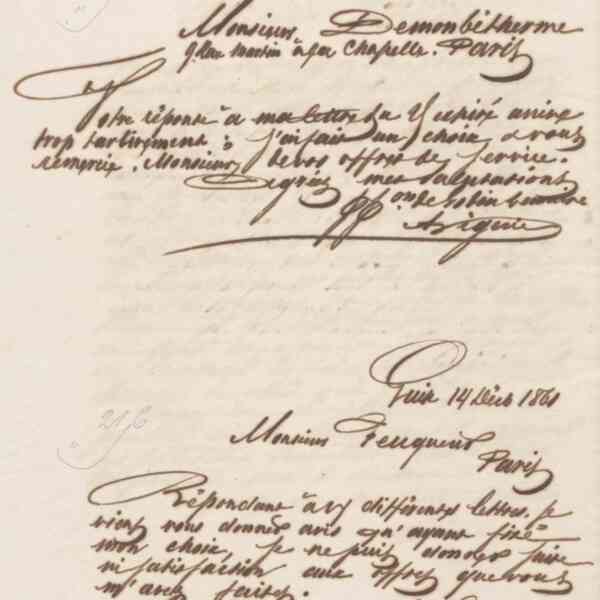 Monsieur Demonbétherme
9 Rue Martin à la Chapelle. Paris
Votre réponse à ma lettre du 9 arrive
trop tardivement; j'ai fait un choix & vous
remercie, Monsieur, de vos offres de service.
Agréez mes salutations
pp on de
Guise 14 Décb 1861
Monsieur Feuquend
Paris
216
Répondant à vs différentes lettres, je
viens vous donner avis qu'ayant fixé
mon choix, je ne puis donner suite
ni satisfaction aux offres que vous
m'avez faites.